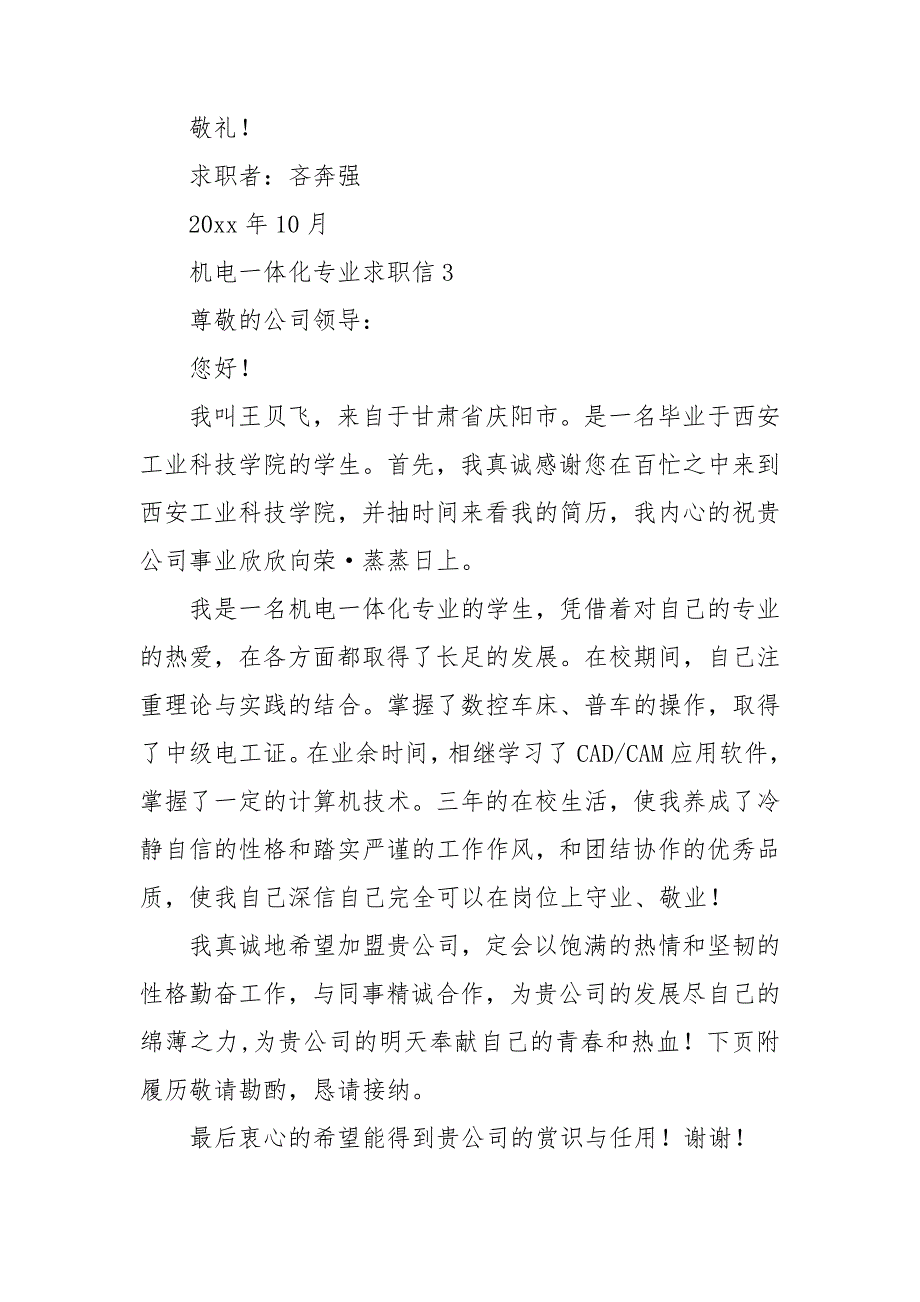 敬礼！
求职者：吝奔强
20xx 年 10 月
机电一体化专业求职信 3
尊敬的公司领导：
您好！
我叫王贝飞，来自于甘肃省庆阳市。是一名毕业于西安
工业科技学院的学生。首先，我真诚感谢您在百忙之中来到
西安工业科技学院，并抽时间来看我的简历，我内心的祝贵
公司事业欣欣向荣·蒸蒸日上。
我是一名机电一体化专业的学生，凭借着对自己的专业
的热爱，在各方面都取得了长足的发展。在校期间，自己注
重理论与实践的结合。掌握了数控车床、普车的操作，取得
了中级电工证。在业余时间，相继学习了 CAD/CAM 应用软件，
掌握了一定的计算机技术。三年的在校生活，使我养成了冷
静自信的性格和踏实严谨的工作作风，和团结协作的优秀品
质，使我自己深信自己完全可以在岗位上守业、敬业！
我真诚地希望加盟贵公司，定会以饱满的热情和坚韧的
性格勤奋工作，与同事精诚合作，为贵公司的发展尽自己的
绵薄之力,为贵公司的明天奉献自己的青春和热血！下页附
履历敬请勘酌，恳请接纳。
最后衷心的希望能得到贵公司的赏识与任用！谢谢！